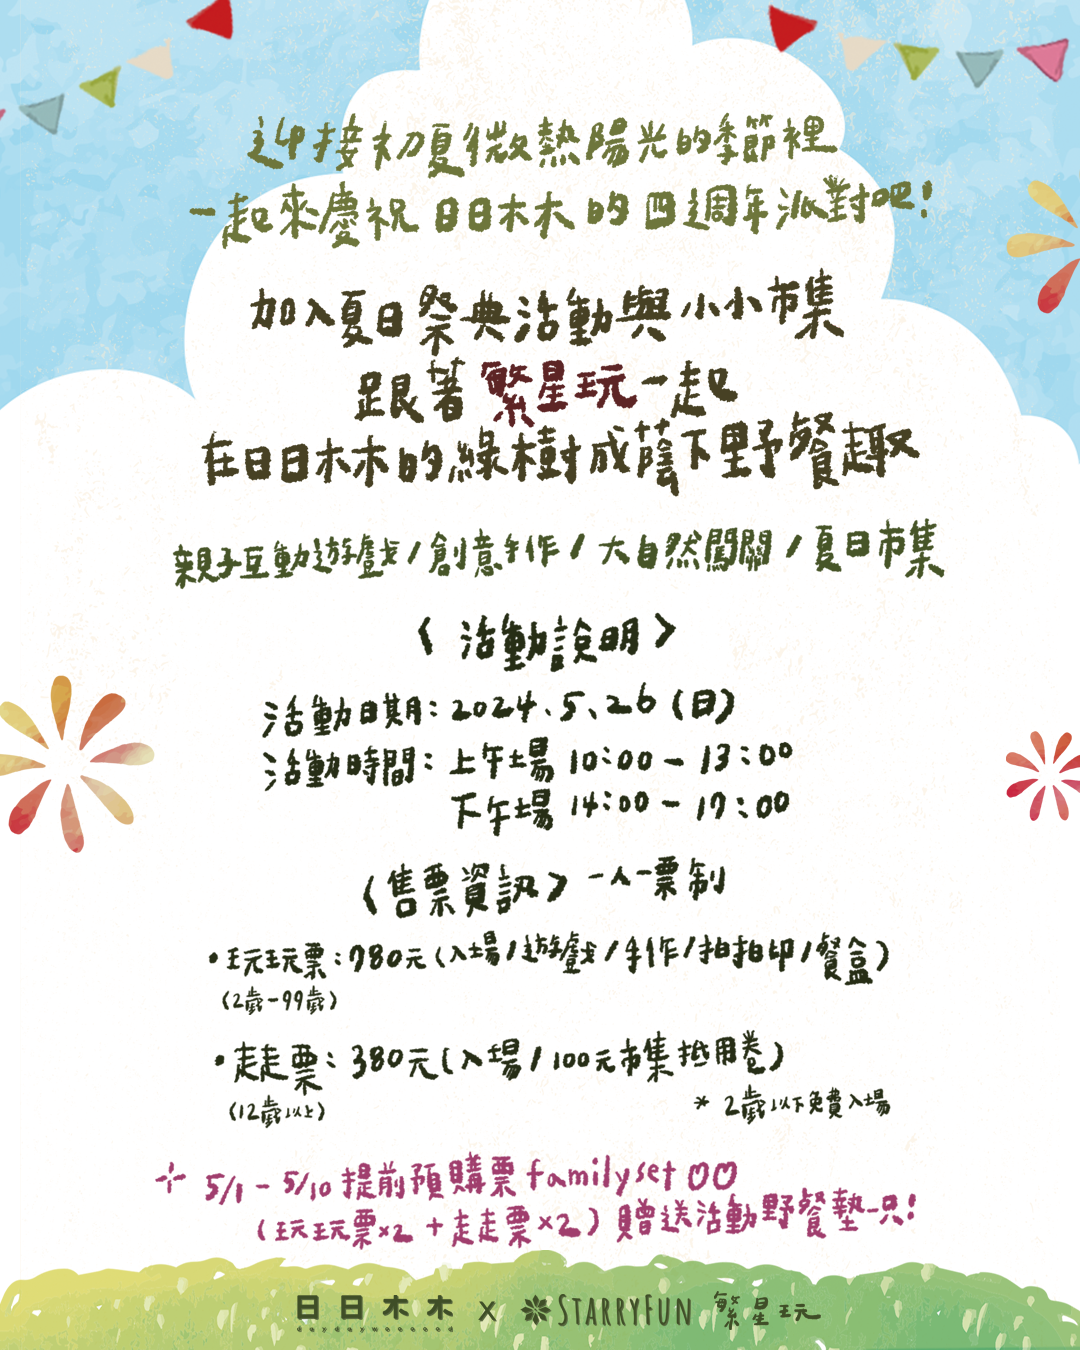 迎接初夏微熱陽光的季節裡
一起來慶祝日日木木的四週年派對吧!
加入夏日祭典活動與小小市集
跟著繁星玩一起
在日日木木的綠樹成蔭下野餐趣
親子互動遊戲/創意手作/大自然闖關/夏日市集
〈活動說明〉
活動日期:2024.5、26(日)
活動時間:上午場 10:00-13:00
下午場 14:00-17:00
〈售票資訊〉一人一票制
•玩玩票:780元(入場/遊戲/手作/拍拍印/餐盒)
(2歲-99歲)
•走走票:380元(入場/100元市集抵用卷)
(12歲以上)
* 2歲以下免費入場
5/1-5/10 提前預購票 familyset
(玩玩票×2+走走票×2)贈送活動野餐墊一只!
日日木木 X STARRYFUN 繁星玩